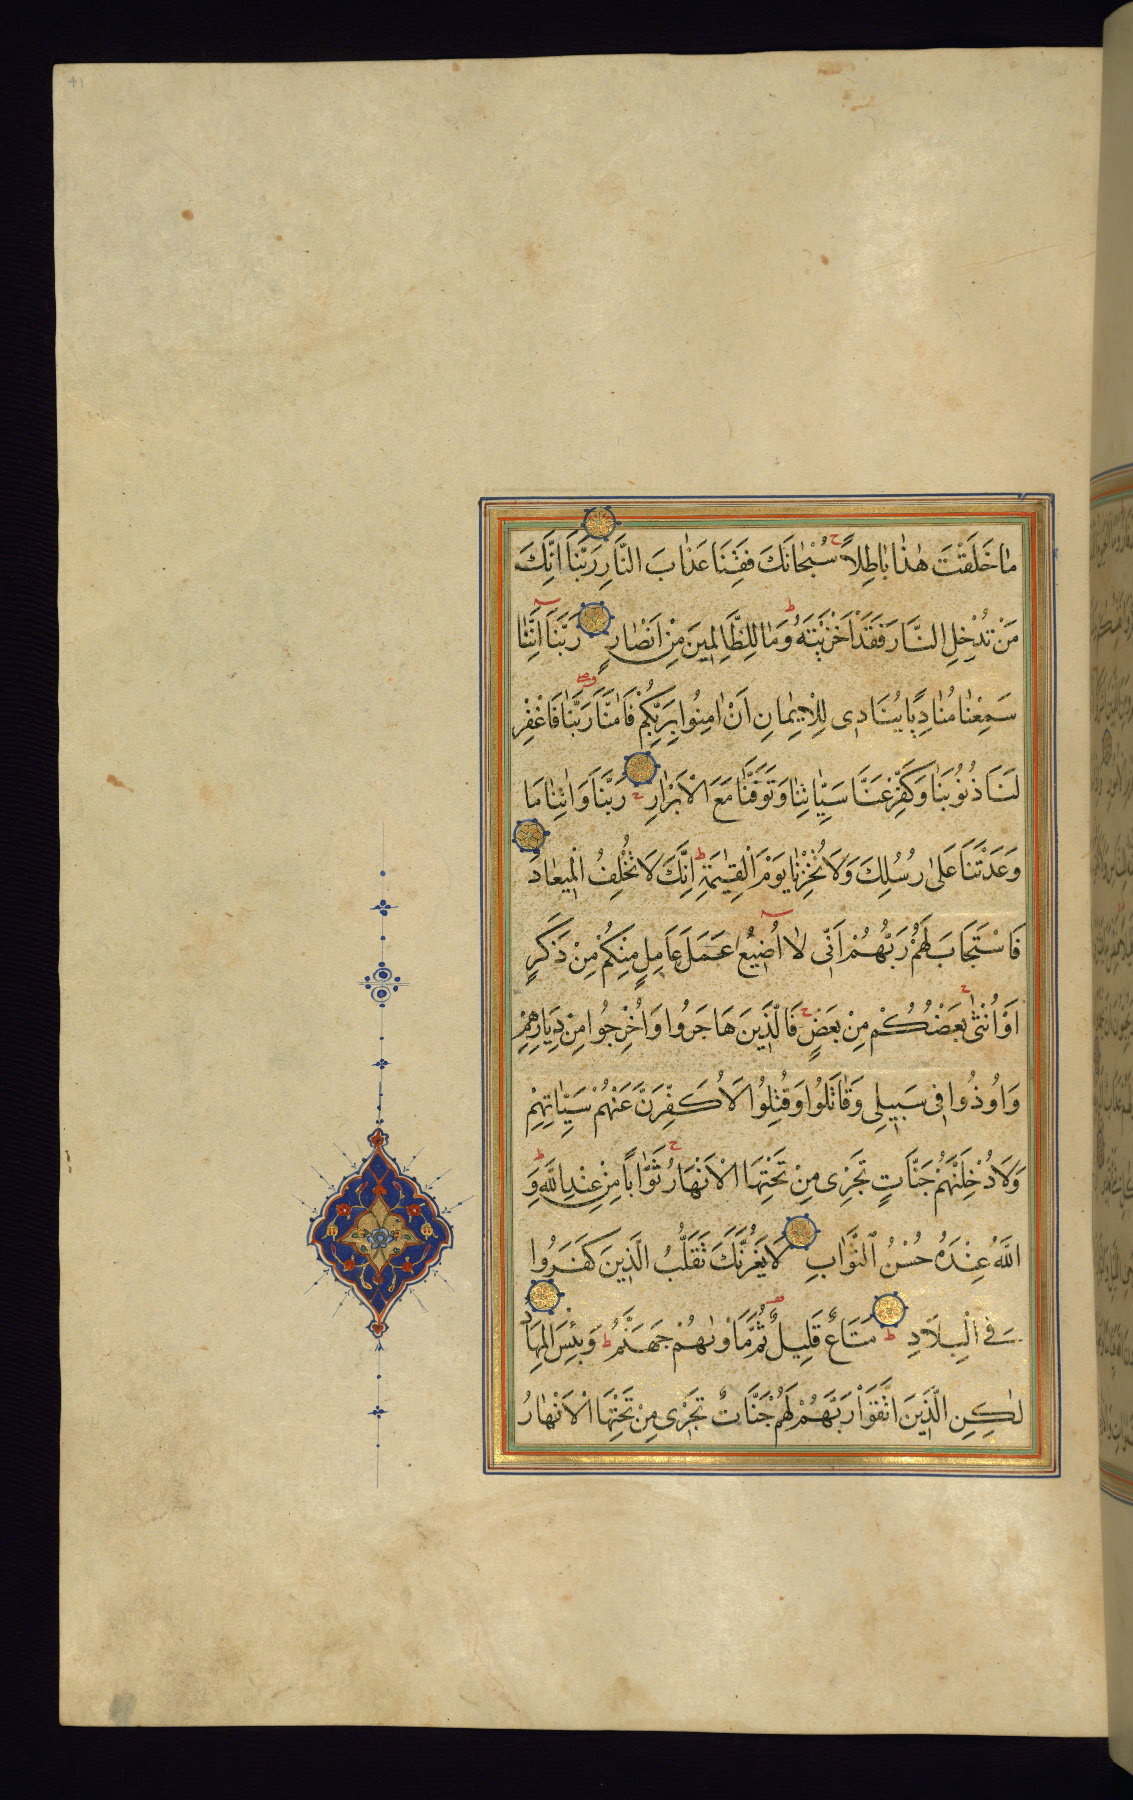 مَا خَلَقْتَ هٰذَا بَاطِلًا سُبْحَانَكَ فَقِنَا عَذَابَ النَّارِ رَبَّنَا اِنَّكَ
مَنْ تُدْخِلِ النَّارَ فَقَدْ اَخْزَيْتَهُ وَمَا لِلظَّالِمِينَ مِنْ اَنْصَارٍ رَبَّنَا اِنَّنَا
سَمِعْنَا مُنَادِيًا يُنَادِى لِلْاِيمَانِ اَنْ اٰمِنُوا بِرَبِّكُمْ فَاٰمَنَّا رَبَّنَا فَاغْفِرْ
لَنَا ذُنُوبَنَا وَكَفِّرْ عَنَّا سَيِّاٰتِنَا وَتَوَفَّنَا مَعَ الْاَبْرَارِ رَبَّنَا وَاٰتِنَا مَا
وَعَدْتَنَا عَلٰى رُسُلِكَ وَلَا تُخْزِنَا يَوْمَ الْقِيٰمَةِ اِنَّكَ لَا تُخْلِفُ الْمِيعَادَ
فَاسْتَجَابَ لَهُمْ رَبُّهُمْ اَنِّى لَا اُضِيعُ عَمَلَ عَامِلٍ مِنْكُمْ مِنْ ذَكَرٍ
اَوْ اُنْثٰى بَعْضُكُمْ مِنْ بَعْضٍ فَالَّذِينَ هَاجَرُوا وَاُخْرِجُوا مِنْ دِيَارِهِمْ
وَاُوذُوا فِى سَبِيلِى وَقَاتَلُوا وَقُتِلُوا لَاُكَفِّرَنَّ عَنْهُمْ سَيِّاٰتِهِمْ
وَلَاُدْخِلَنَّهُمْ جَنَّاتٍ تَجْرِى مِنْ تَحْتِهَا الْاَنْهَارُ ثَوَابًا مِنْ عِنْدِ اللّٰهِ وَ
اللّٰهُ عِنْدَهُ حُسْنُ الثَّوَابِ لَا يَغُرَّنَّكَ تَقَلُّبُ الَّذِينَ كَفَرُوا
فِى الْبِلَادِ مَتَاعٌ قَلِيلٌ ثُمَّ مَاْوٰىهُمْ جَهَنَّمُ وَبِئْسَ الْمِهَادُ
لٰكِنِ الَّذِينَ اتَّقَوْا رَبَّهُمْ لَهُمْ جَنَّاتٌ تَجْرِى مِنْ تَحْتِهَا الْاَنْهَارُ